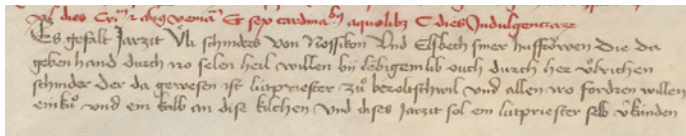 dies et Et sex cardinalibus a quolibet C dies Indulgentiarum
Es gefalt Jarzit Uli schniders von Nossikon Und Elsbeth siner husfrowen die da
geben hand durch iro selen heil willen by lebigem lib ouch durch her uolrichen
schnider der da gewesen ist lütpriester zuo beroltschwil und allen iro fordren willen
ein kuo und ein kalb an dise kilchen Und dises Jarzit sol ein lütpriester selb verkünden